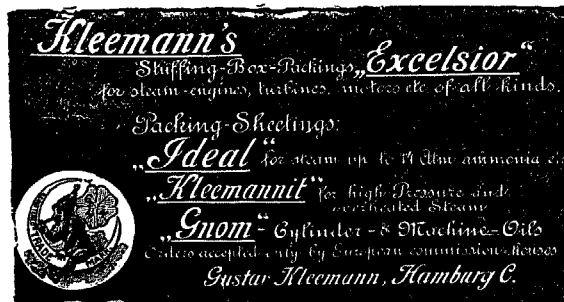 Kleemann's
Stuffing-Box-Packings „Excelsior“
for steam-engines, turbines, motors etc of all kinds.
Packing-Sheetings:
„Ideal“ for steam up to 14 Atm ammonia etc
„Kleemannit“ for high Pressure and
overheated Steam
„Gnom“- Cylinder- & Machine-Oils
Orders accepted only by European commission-houses
Gustav Kleemann, Hamburg C.
TRADE MARK